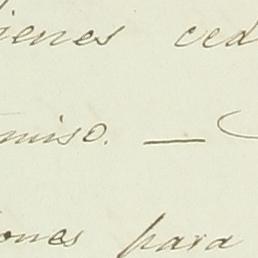 ienes ced
miso. —
ones para